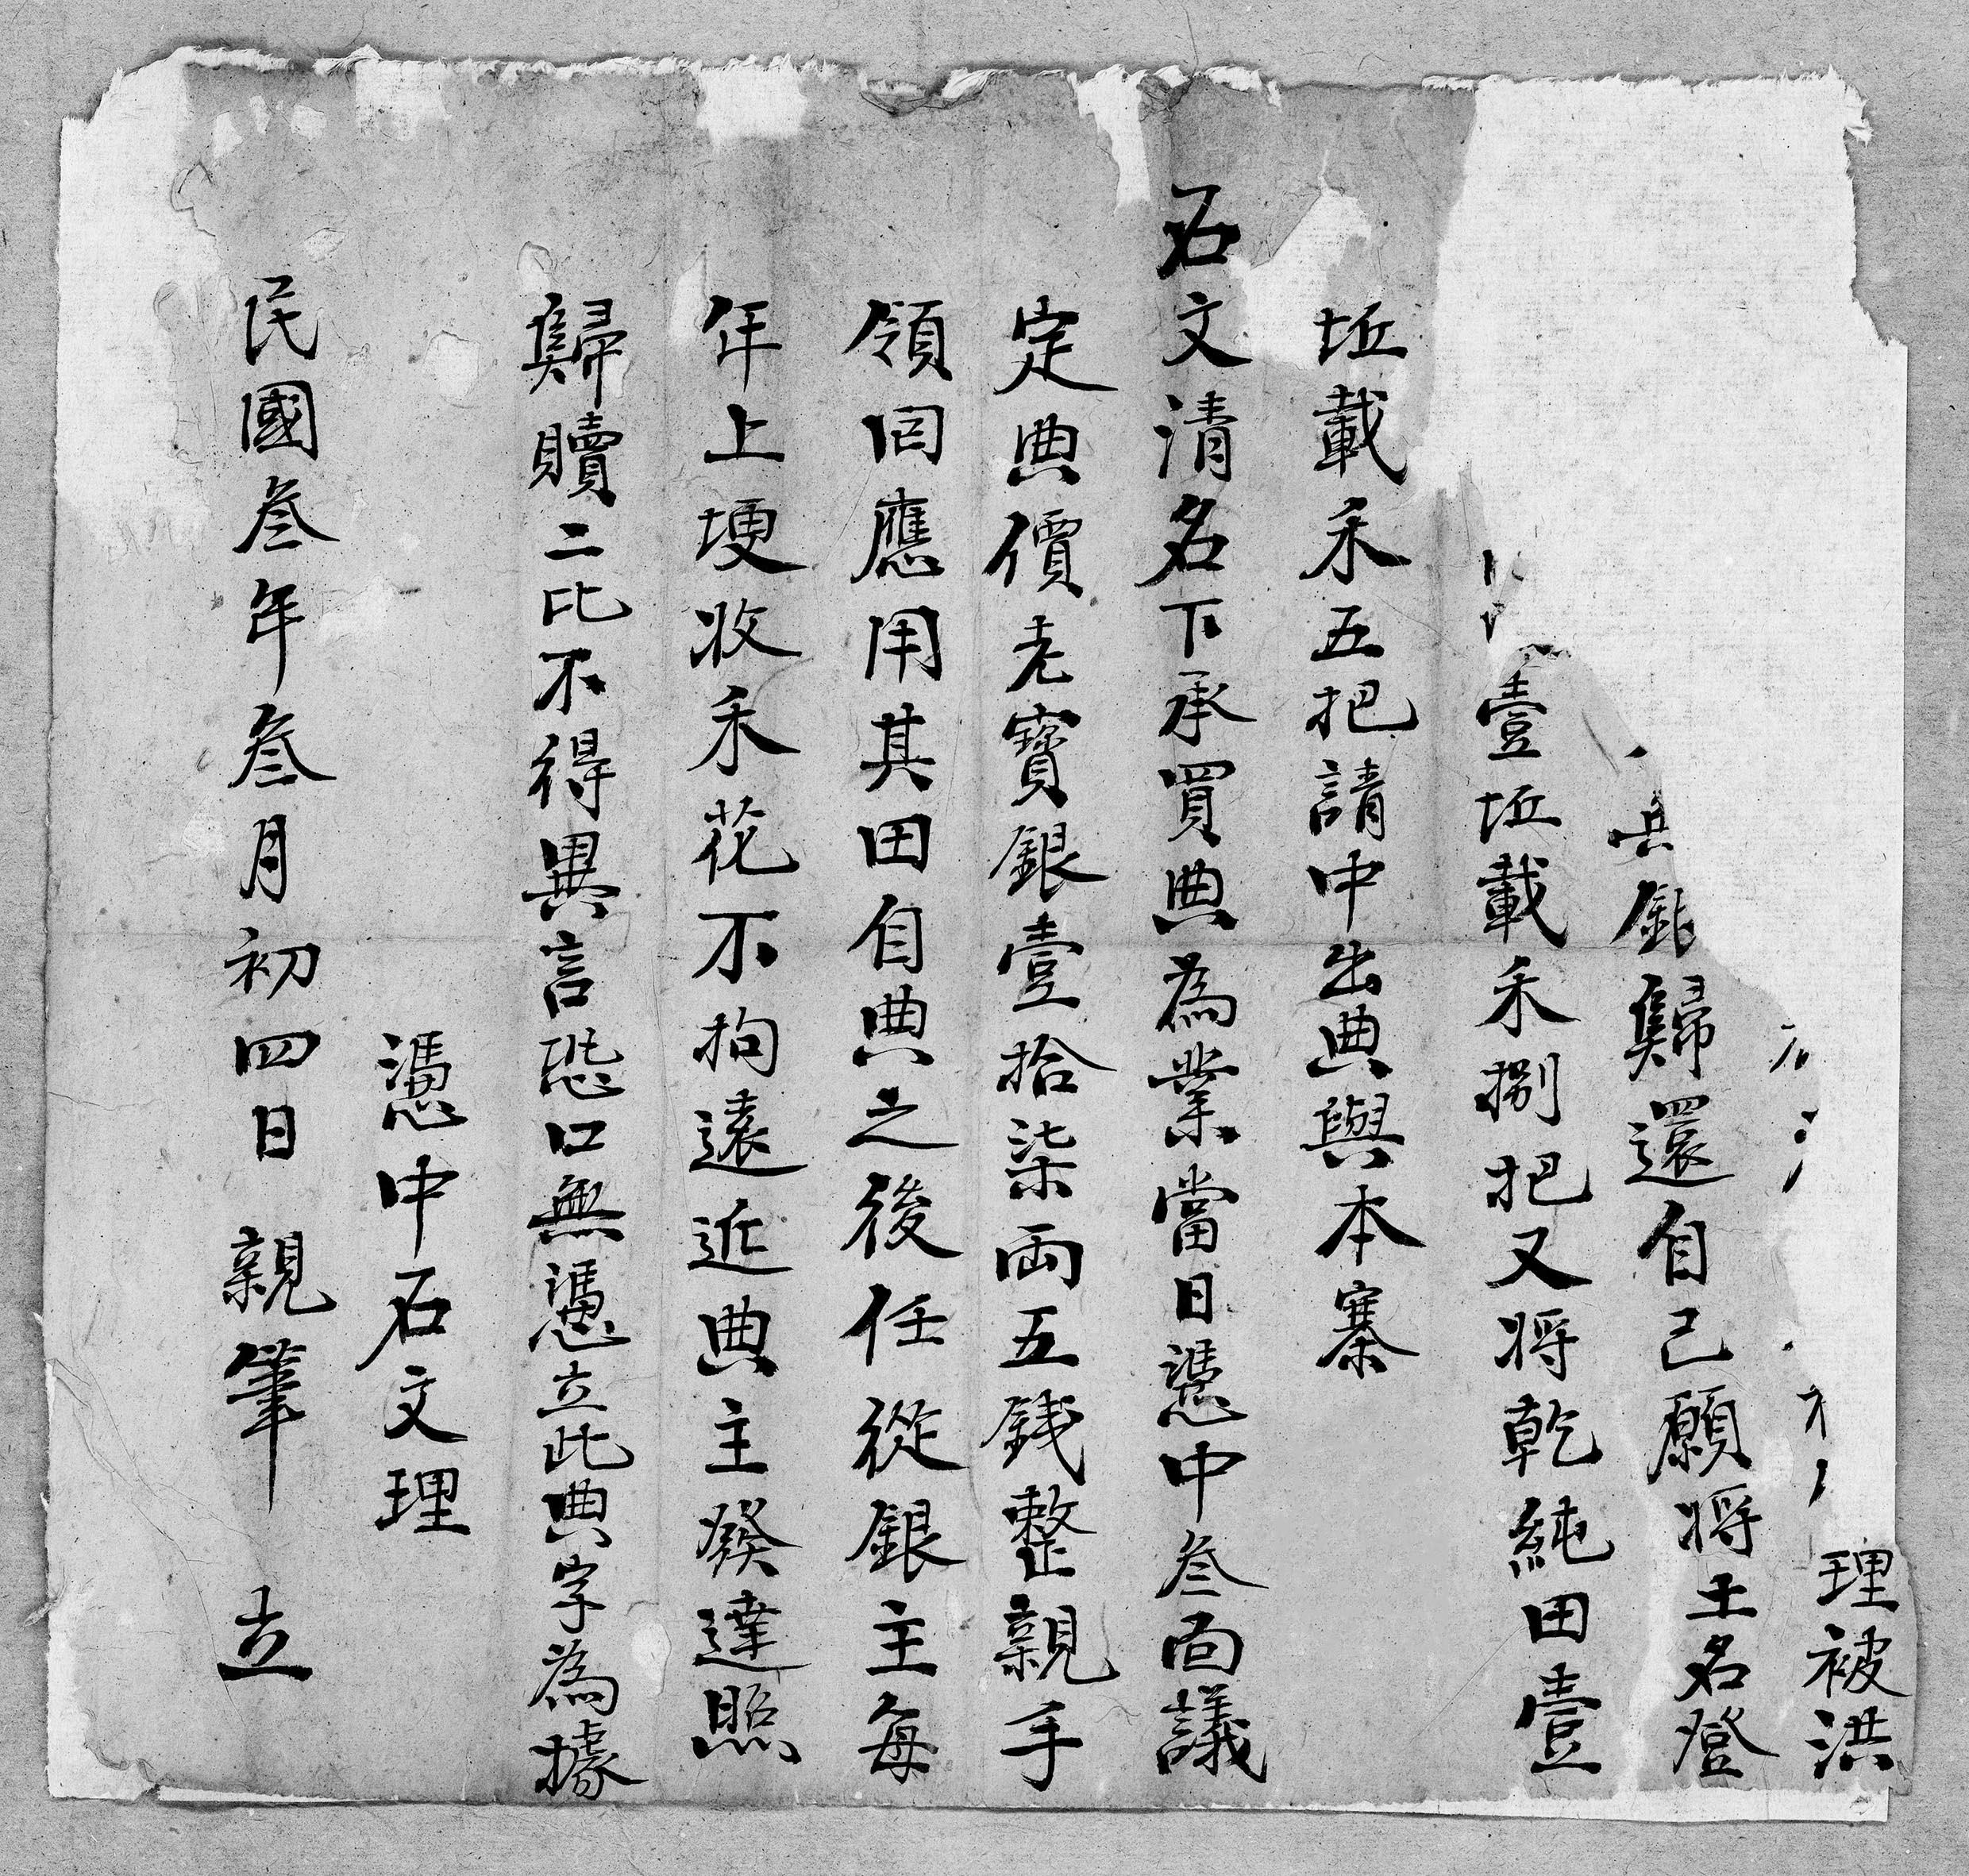 理被洪
銀歸還自己願將土名登
壹坵載禾捌把又将乾純田壹
坵載禾五把請中出典與本寨
石文清名下承買典為業當日憑中叁面議
定典價老寳銀壹拾柒両五銭整親手
領囘應用其田自典之後任從銀主每
年上埂收禾花不拘遠近典主發達照
歸贖二比不得異言恐口無憑立此典字為據
憑中石文理
民國叁年叁月初四日 親筆 立